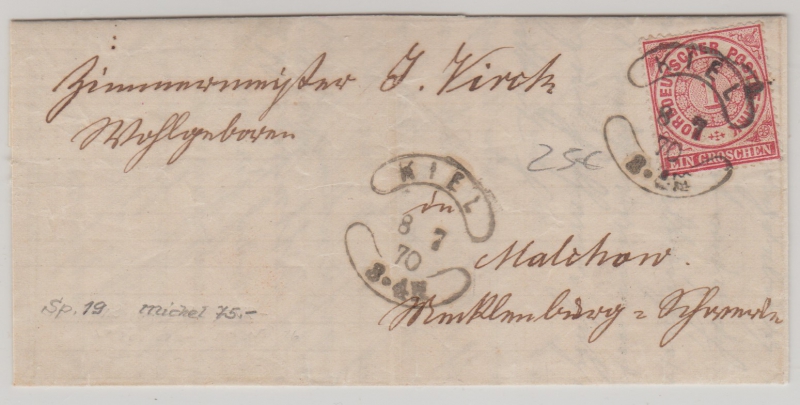 Zimmermeister J. Virck
Wohlgeboren
KIEL
8 7
70
NORDDEUTSCHER POSTBEZIRK
1
EIN GROSCHEN
25€
KIEL
8 7
70
3-4N
in
Malchow.
Mecklenburg = Schwerin
Sp. 19 Michel 75.-